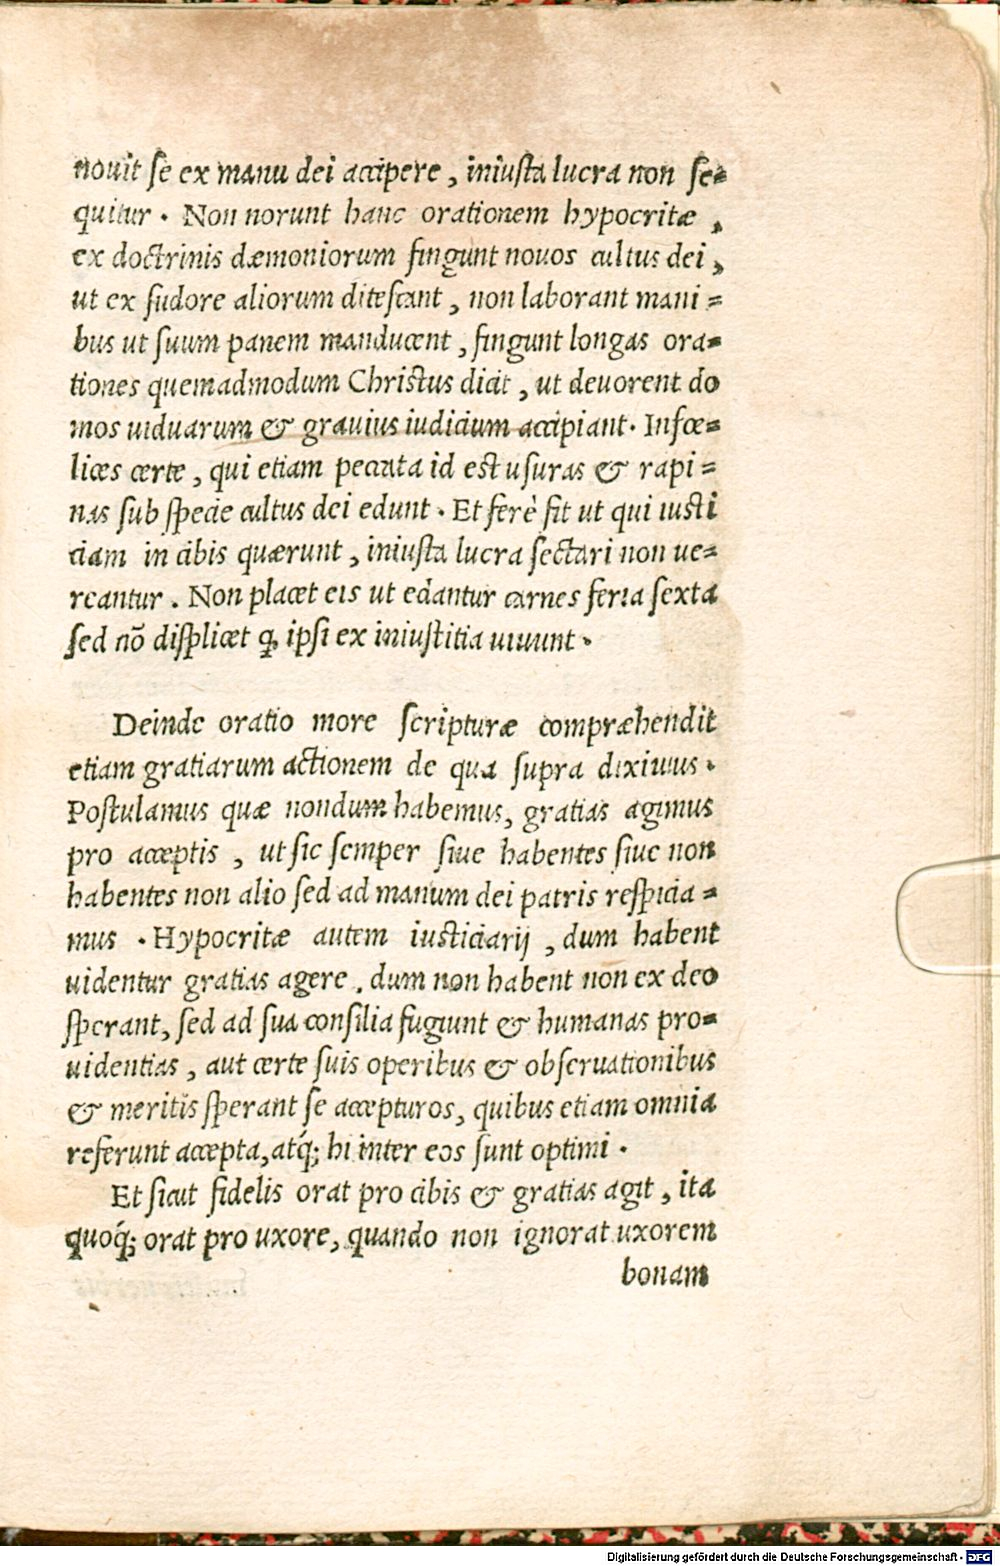 nouit ſe ex manu dei accipere , iniuſta lucra non ſe⸗
quitur . Non norunt hanc orationem hypocritæ ,
ex doctrinis dæmoniorum fingunt nouos cultus dei ,
ut ex ſudore aliorum diteſcant , non laborant mani⸗
bus ut ſuum panem manducent , fingunt longas ora⸗
tiones quemadmodum Chriſtus dicit , ut deuorent do
mos uiduarum & grauius iudicium accipiant . Infœ⸗
lices certe , qui etiam peccata id est uſuras & rapi⸗
nas ſub ſpecie cultus dei edunt . Et ferè fit ut qui iusti
ciam in cibis quærunt , iniuſta lucra ſectari non ue⸗
reantur . Non placet eis ut edantur carnes feria ſexta
ſed nõ diſplicet ꝙ ipſi ex iniuſtitia uiuunt .
Deinde oratio more ſcripturæ compræhendit
etiam gratiarum actionem de qua ſupra diximus .
Poſtulamus quæ nondum habemus, gratias agimus
pro acceptis , ut ſic ſemper ſiue habentes ſiue non
habentes non alio ſed ad manum dei patris reſpicia⸗
mus . Hypocritæ autem iusticiarij , dum habent
uidentur gratias agere , dum non habent non ex deo
ſperant, ſed ad ſua conſilia fugiunt & humanas pro⸗
uidentias , aut certe ſuis operibus & obſeruationibus
& meritis ſperant ſe accepturos, quibus etiam omnia
referunt accepta, atq́; hi inter eos ſunt optimi .
Et ſicut fidelis orat pro cibis & gratias agit , ita
quoq́; orat pro uxore, quando non ignorat uxorem
bonam
Digitalisierung gefördert durch die Deutsche Forschungsgemeinschaft - DFG